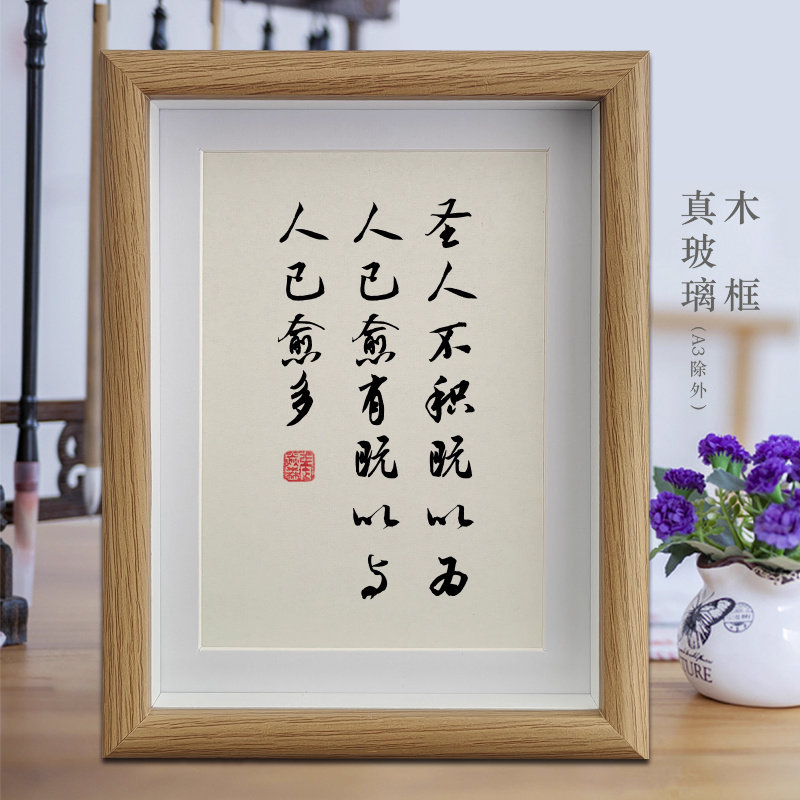 圣人不积既以为
人已愈有既以与
人已愈多
木框
真玻璃
(A3除外)
TURE